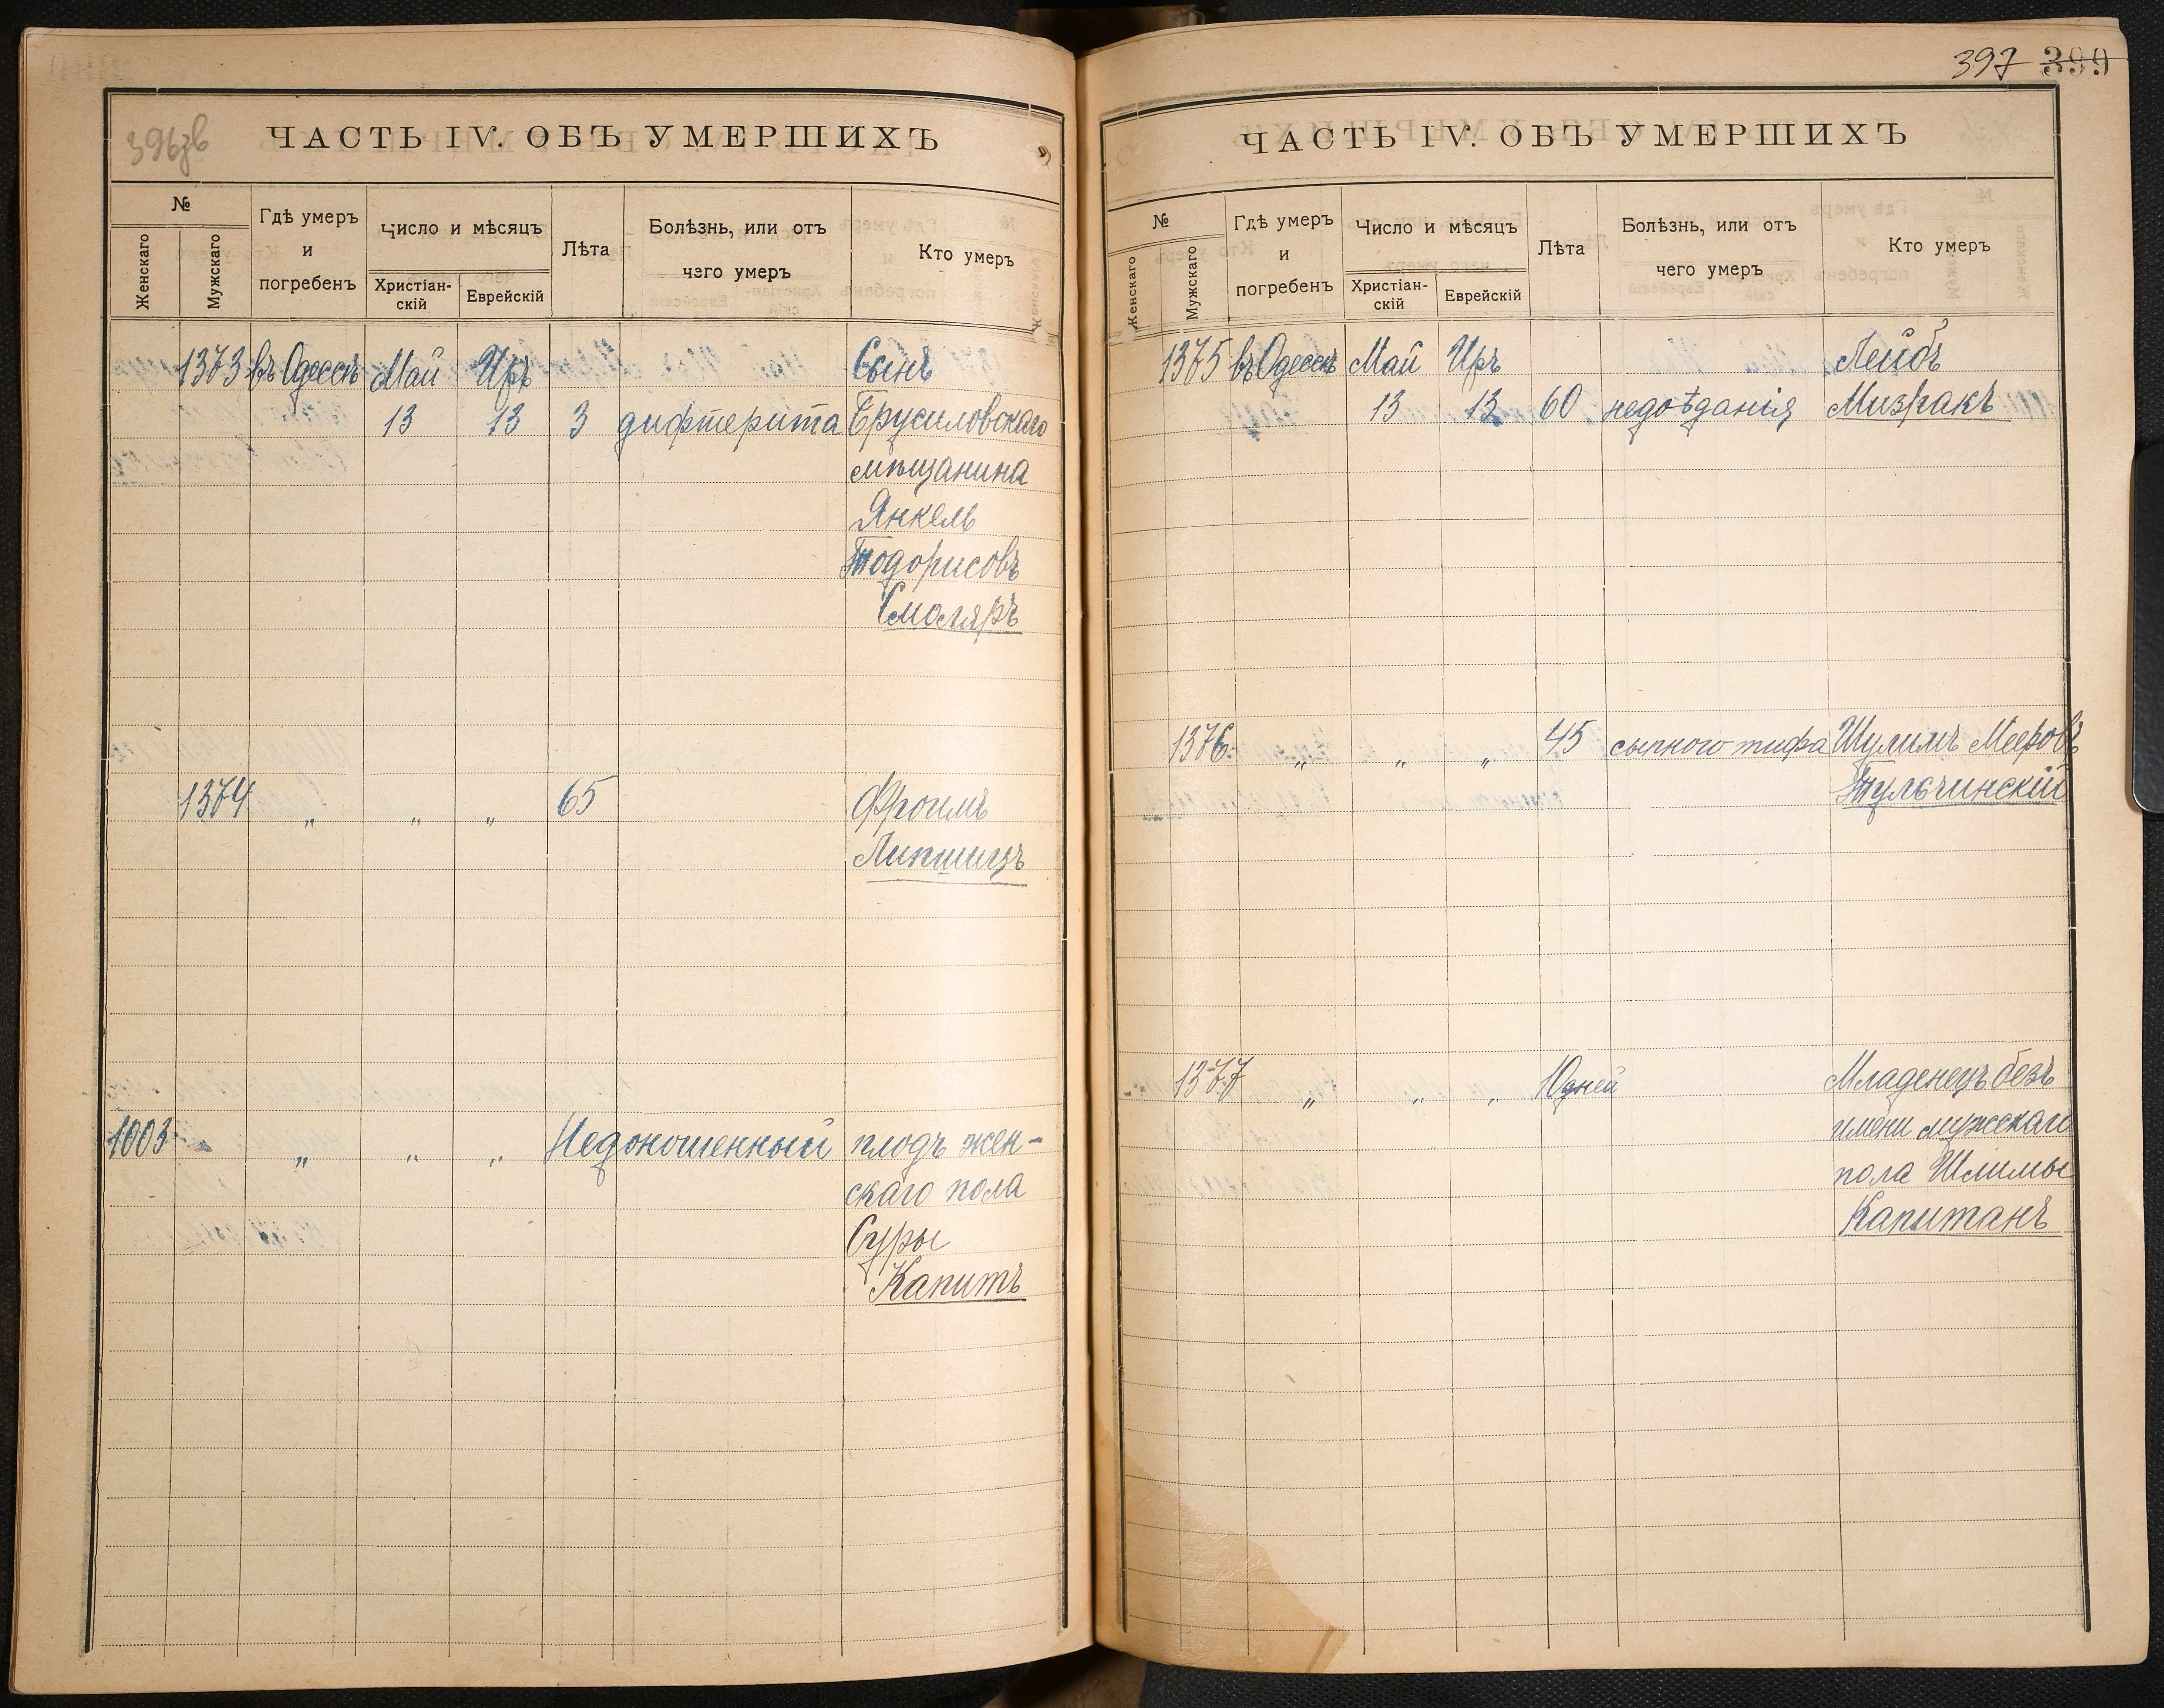 396зв
ЧАСТЬ IV. ОБЪ УМЕРШИХЪ
№
Женскаго
Мужскаго
Гдѣ умеръ
и
погребенъ
Число и мѣсяцъ
Христіан-
скій
Еврейскій
Лѣта
Болѣзнь, или отъ
чего умеръ
Кто умеръ
1373 въ Одессѣ Май Иръ Сынъ
13 13 3 дифтерита Брусиловскаго
мѣщанина
Янкель
Тодорисовъ
Смоляръ
1374 „ „ „ 65 Фроимъ
Липшицъ
1003 „ „ „ Недоношенный плодъ жен-
скаго пола
Суры
Капитъ
397 399
ЧАСТЬ IV. ОБЪ УМЕРШИХЪ
№
Женскаго
Мужскаго
Гдѣ умеръ
и
погребенъ
Число и мѣсяцъ
Христіан-
скій
Еврейскій
Лѣта
Болѣзнь, или отъ
чего умеръ
Кто умеръ
1375 въ Одессѣ Май Иръ Лейбъ
13 13 60 недоѣданія Мизракъ
1376 „ „ „ 45 сыпного тифа Шулимъ Мееровъ
Тульчинскій
1377 „ „ „ 10 дней Младенецъ безъ
имени мужскаго
пола Шлимы
Капитанъ